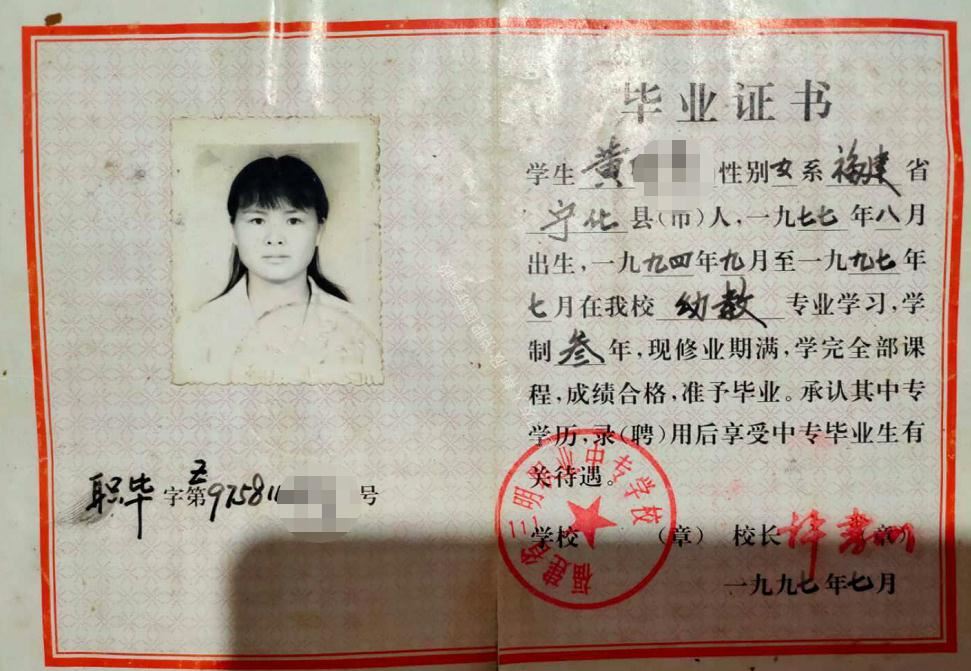 毕业证书
学生黄 性别女系福建省
宁化县(市)人,一九七七年八月
出生,一九九四年九月至一九九七年
七月在我校幼教专业学习,学
制叁年,现修业期满,学完全部课
程,成绩合格,准予毕业。承认其中专
学历,录(聘)用后享受中专毕业生有
关待遇。
学校 (章) 校长 (章)
一九九七年七月
福建省三明职业中专学校
职毕字第 97581 号